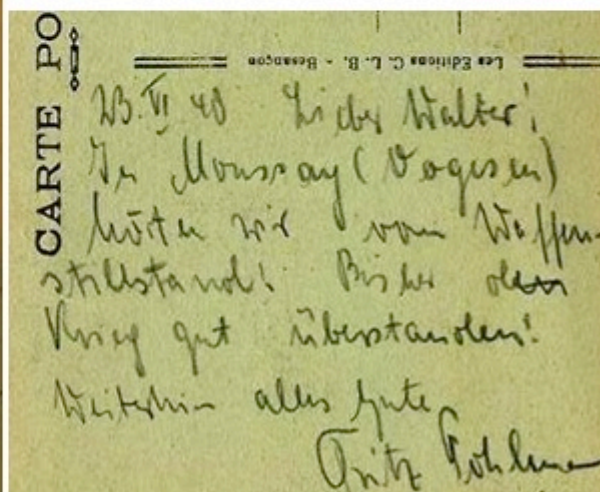 CARTE PO
Les Editions C. L. B. - Besançon
23.VI.40 Lieber Walter!
In Moussay (Vogesen)
hörten wir vom Waffen-
stillstand! Bisher den
Krieg gut überstanden!
Weiterhin alles Gute
Fritz